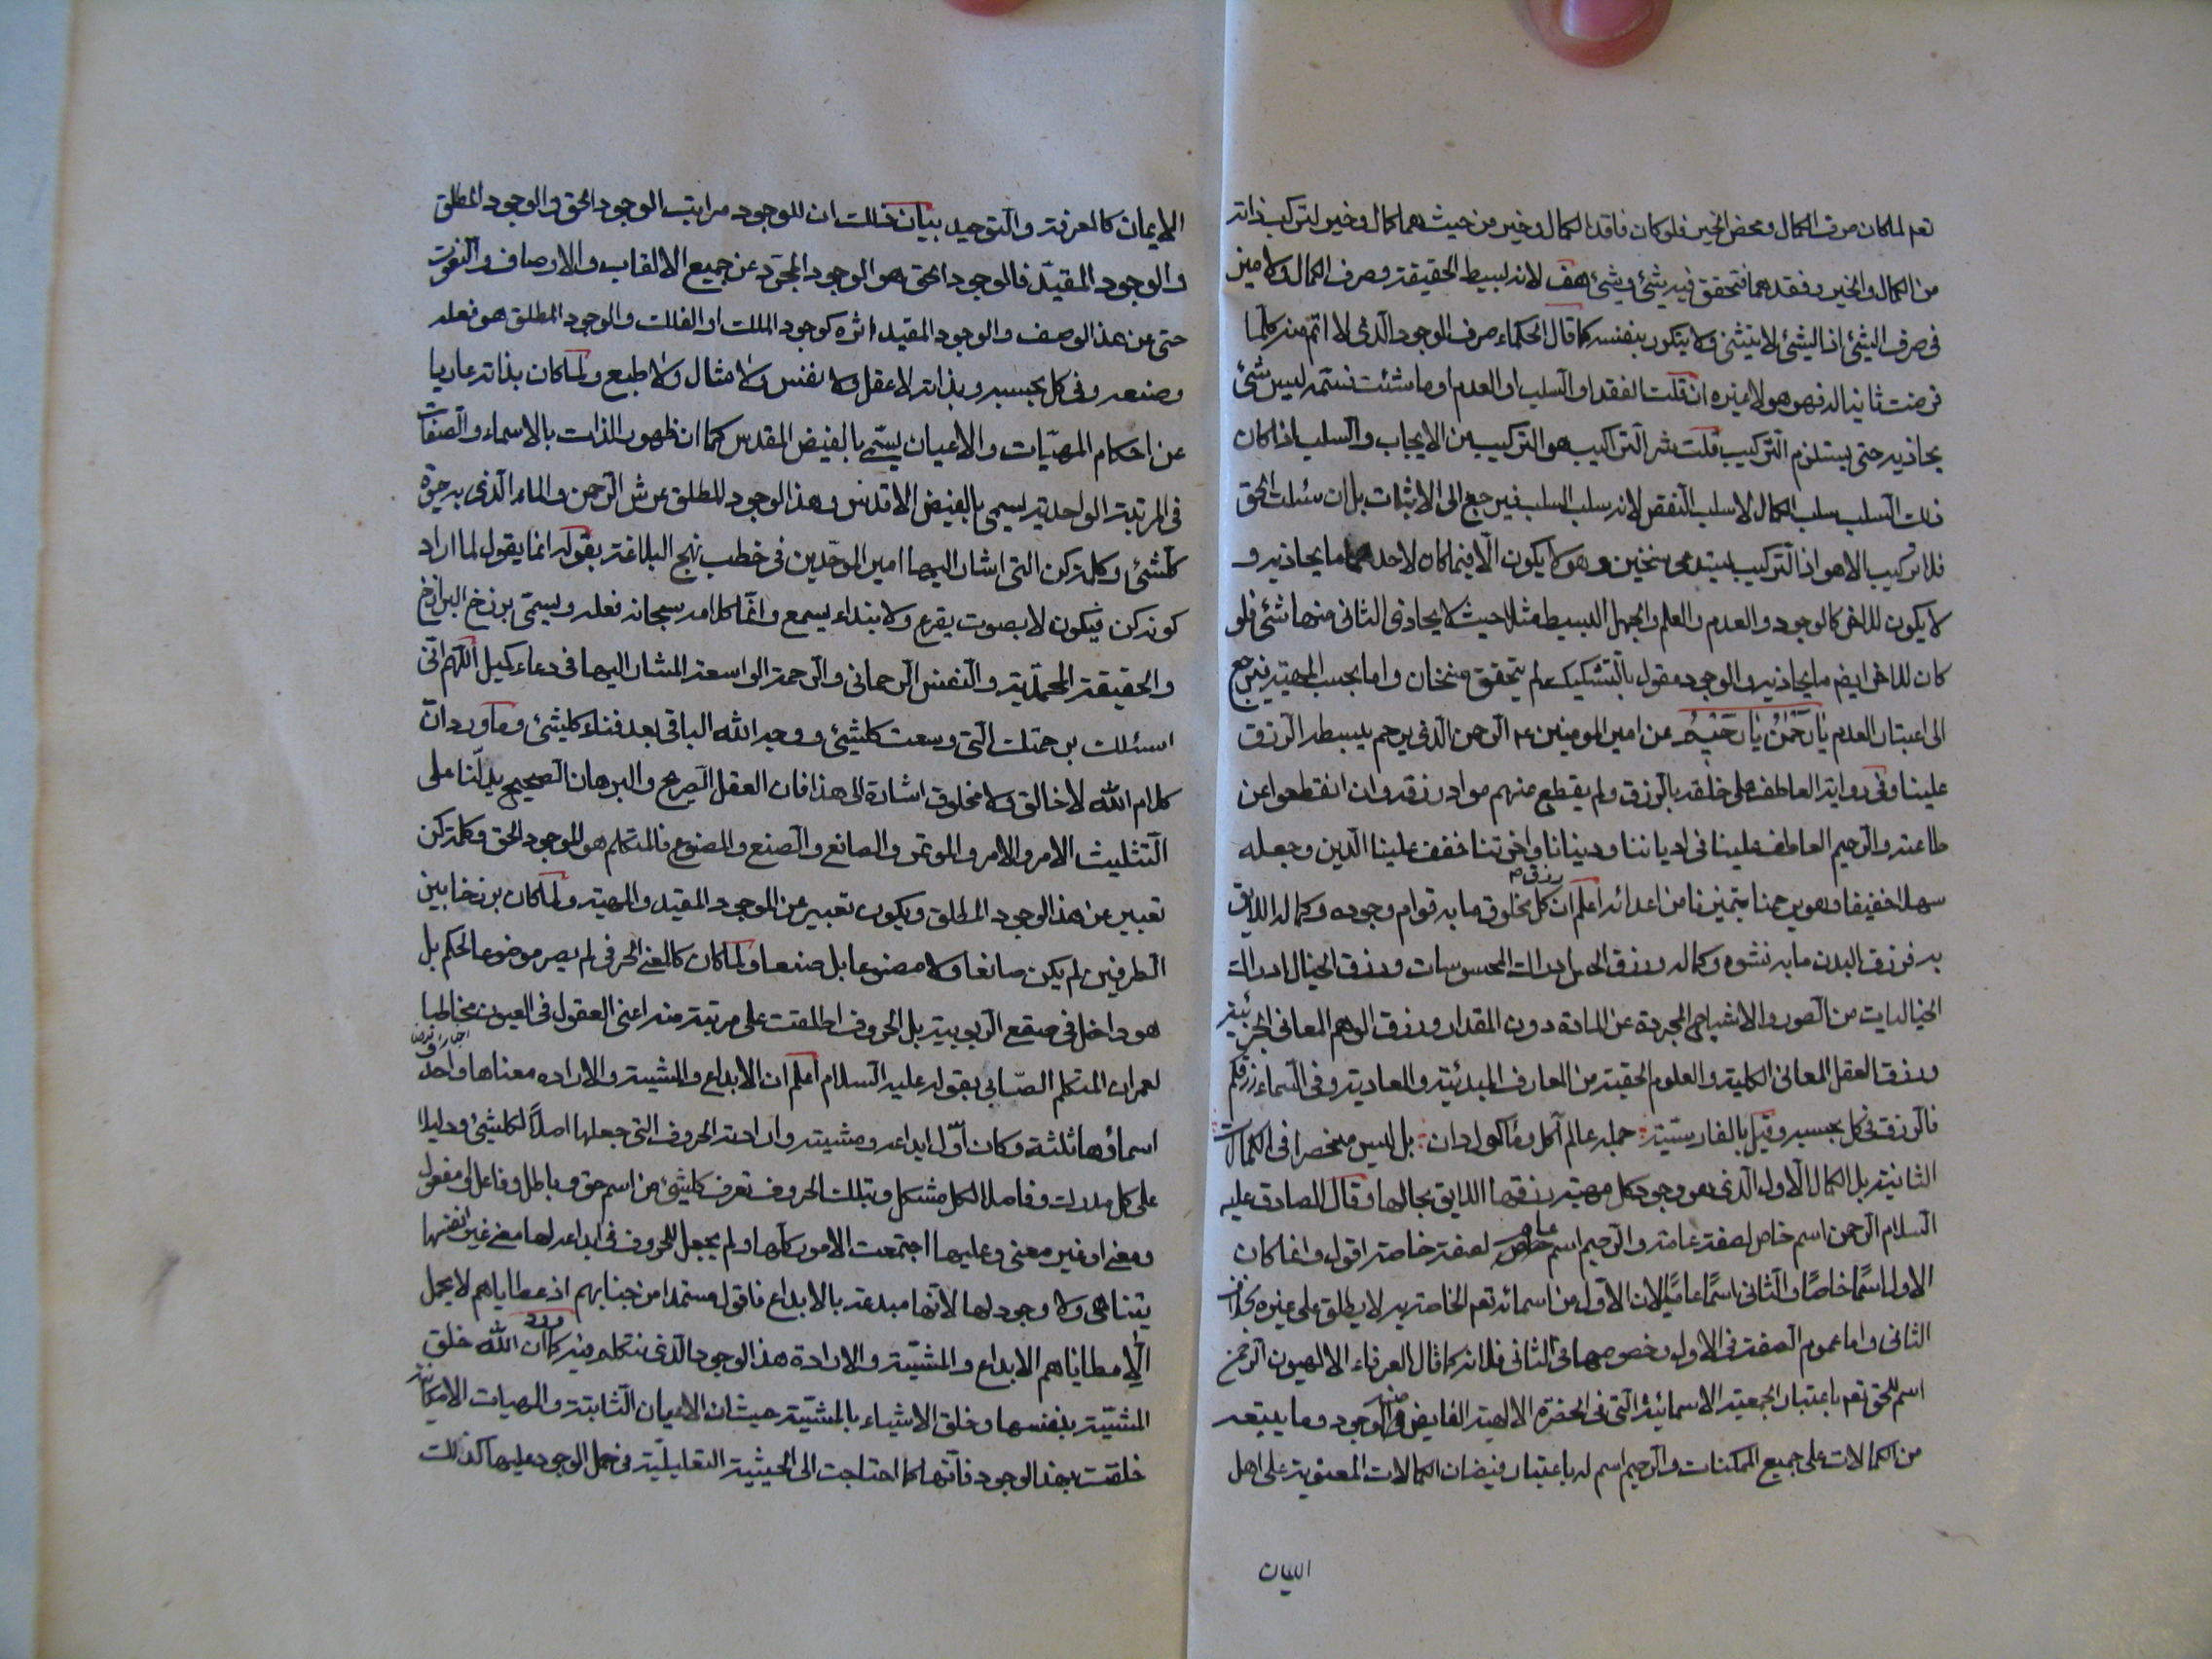 تعم لماكان صرف الكمال ومحض الخير فلوكان فاقدا لكمال وخير من حيث هما كمال وخير لتركب ذاته
من الكمال والخير وفقدهما فتحقق فيه شئ وشئ هف لانه بسيط الحقيقة وصرف الكمال ولا ميز
فى صرف الشئ اذ الشئ لا يتثنى ولا يتكرر بنفسه كما قال الحكماء صرف الوجود الذى لا اتم منه كلما
فرضت ثانيا له فهو هو لا غيره ان قلت الفقد او السلب او العدم او ما شئت فسمه ليس شئ
يحاذيه حتى يستلزم التركيب قلت شر التراكيب هو التركيب من الايجاب والسلب اذا كان
ذلك السلب سلب الكمال لا سلب النقص لانه سلب السلب فيرجع الى الاثبات بل ان سئلت الحق
فلا تركيب الا هو اذ التركيب يستدعى سنخين وهو لا يكون الا فيما كان لاحدهما ما يحاذيه و
لا يكون للاخر كالوجود والعدم والعلم والجهل البسيط مثلا حيث لا يحاذى الثانى منهما شئ فلو
كان للاخر ايضا ما يحاذيه والوجود مقول بالتشكيك لم يتحقق سنخان واما بحسب المهية فيرجع
الى اعتبار العدم يا رحمن يا رحيم عن امير المومنين ع الرحمن الذى يرحم ببسط الرزق
علينا وفى رواية العاطف على خلقه بالرزق ولم يقطع عنهم مواد رزقه وان انقطعوا عن
طاعته والرحيم العاطف علينا فى ادياننا ودنيانا واخرتنا خفف علينا الدين وجعله
سهلا خفيفا وهو يرحمنا بتميزنا من اعدائه اعلم ان رزق كل مخلوق ما به قوام وجوده وكماله اللايق
به فرزق البدن ما به نشوه وكماله ورزق الحس ادراك المحسوسات ورزق الخيال ادراك
الخياليات من الصور والاشباح المجردة عن المادة دون المقدار ورزق الوهم المعانى الجزئية
ورزق العقل المعانى الكلية والعلوم الحقة من المعارف المبدئية والمعادية وفى السماء رزقكم
فالرزق فى كل بحسبه وقيل بالفارسية جمله عالم آكل ومأكول دان بل ليس منحصرا فى الكمالات
الثانية بل الكمال الاول الذى هو وجود كل مهية رزقها اللايق بحالها وقال الصادق عليه
السلام الرحمن اسم خاص لصفة عامة والرحيم اسم عام لصفة خاصة اقول وانما كان
الاول اسما خاصا والثانى اسما عاما لان الاول من اسمائه تعم الخاصة به لا يطلق على غيره بخلاف
الثانى واما عموم الصفة فى الاول وخصوصها فى الثانى فلانه كما قال العرفاء الالهيون الرحمن
اسم للحق تعم باعتبار الجمعية الاسمائية التى فى الحضرة الالهية الفايض منه الوجود وما يتبعه
من الكمالات على جميع الممكنات والرحيم اسم له باعتبار فيضان الكمالات المعنوية على اهل
الايمان كالمعرفة والتوحيد بيان ذلك ان للوجود مراتب الوجود الحق والوجود المطلق
والوجود المقيد فالوجود الحق هو الوجود المجرد عن جميع الالقاب والاوصاف والنعوت
حتى عن هذا الوصف والوجود المقيد اثره كوجود الملك او الفلك والوجود المطلق هو فعله
وصنعه وفى كل بحسبه وبذاته لا عقل ولا نفس ولا مثال ولا طبع ولما كان بذاته عاريا
عن احكام المهيات والاعيان يسمى بالفيض المقدس كما ان ظهور الذات بالاسماء والصفات
فى المرتبة الواحدية يسمى بالفيض الاقدس وهذا الوجود المطلق عرش الرحمن والماء الذى به حيوة
كلشئ وكلمة كن التى اشار اليها امير الموحدين فى خطب نهج البلاغة بقوله انما يقول لما اراد
كونه كن فيكون لا بصوت يقرع ولا بنداء يسمع وانما كلامه سبحانه فعله ويسمى برزخ البرازخ
والحقيقة المحمدية والنفس الرحمانى والرحمة الواسعة المشار اليها فى دعاء كميل اللهم انى
اسئلك برحمتك التى وسعت كلشئ ووجه الله الباقى بعد فناء كلشئ وما ورد ان
كلام الله لا خالق ولا مخلوق اشارة الى هذا فان العقل الصريح والبرهان الصحيح يدلنا على
التثليث الامر والامر والموتمر والصانع والصنع والمصنوع فالمتكلم هو الموجود الحق وكلمة كن
تعبير عن هذا الوجود المطلق ويكون تعبير عن الموجود المقيد والمهية ولما كان برزخا بين
الطرفين لم يكن صانعا ولا مصنوعا بل صنعا ولما كان كالمعنى الحرفى لم يصر موضوعا لحكم بل
هو داخل فى صقع الربوبية بل الحروف اطلقت على مرتبة منه اعنى العقول فى العيون مخاطبا
لعمران المتكلم الصابى بقوله عليه السلام اعلم ان الابداع والمشية والاراده معناها واحد
اسماؤها ثلثة وكان اول ابداعه ومشيته وارادته الحروف التى جعلها اصلا لكلشئ ودليلا
على كل مدرك وفاصلا لكل مشكل وبتلك الحروف تعرف كلشئ من اسم حق وباطل وفاعل او مفعول
ومعنى او غير معنى وعليها اجتمعت الامور كلها ولم يجعل للحروف فى ابداعه لها معنى غير انفسها
يتناهى ولا وجود لها لانها مبدعة بالابداع فاقول مستمدا من جنابهم اذ عطاياهم لا يحمل
الا مطاياهم الابداع والمشية والارادة هذا الوجود الذى نتكلم فيه كما ورد ان الله خلق
المشية بنفسها وخلق الاشياء بالمشية حيث ان الاعيان الثابتة والمهيات الامكانية
خلقت بهذا الوجود فانها كما احتاجت الى الحيثية التعليلية فى حمل الوجود عليها كذلك